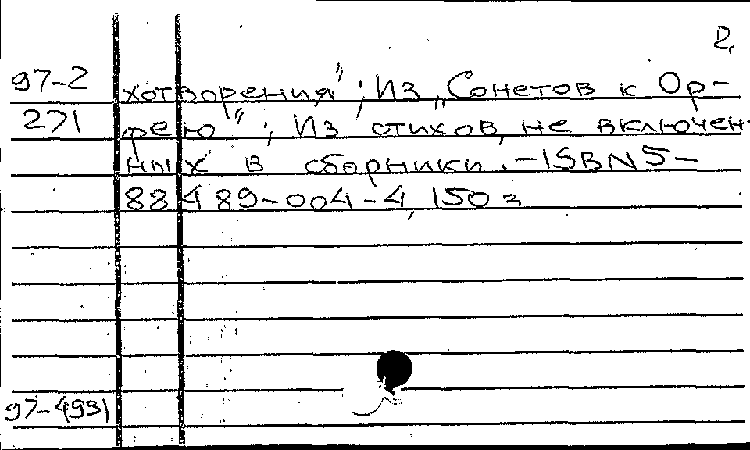 2.
97-2 хотворения"; Из „Сонетов к Ор-
271 фею"; Из стихов, не включен-
ных в сборники. -ISBN5-
88489-004-4, 150 э
97-4931